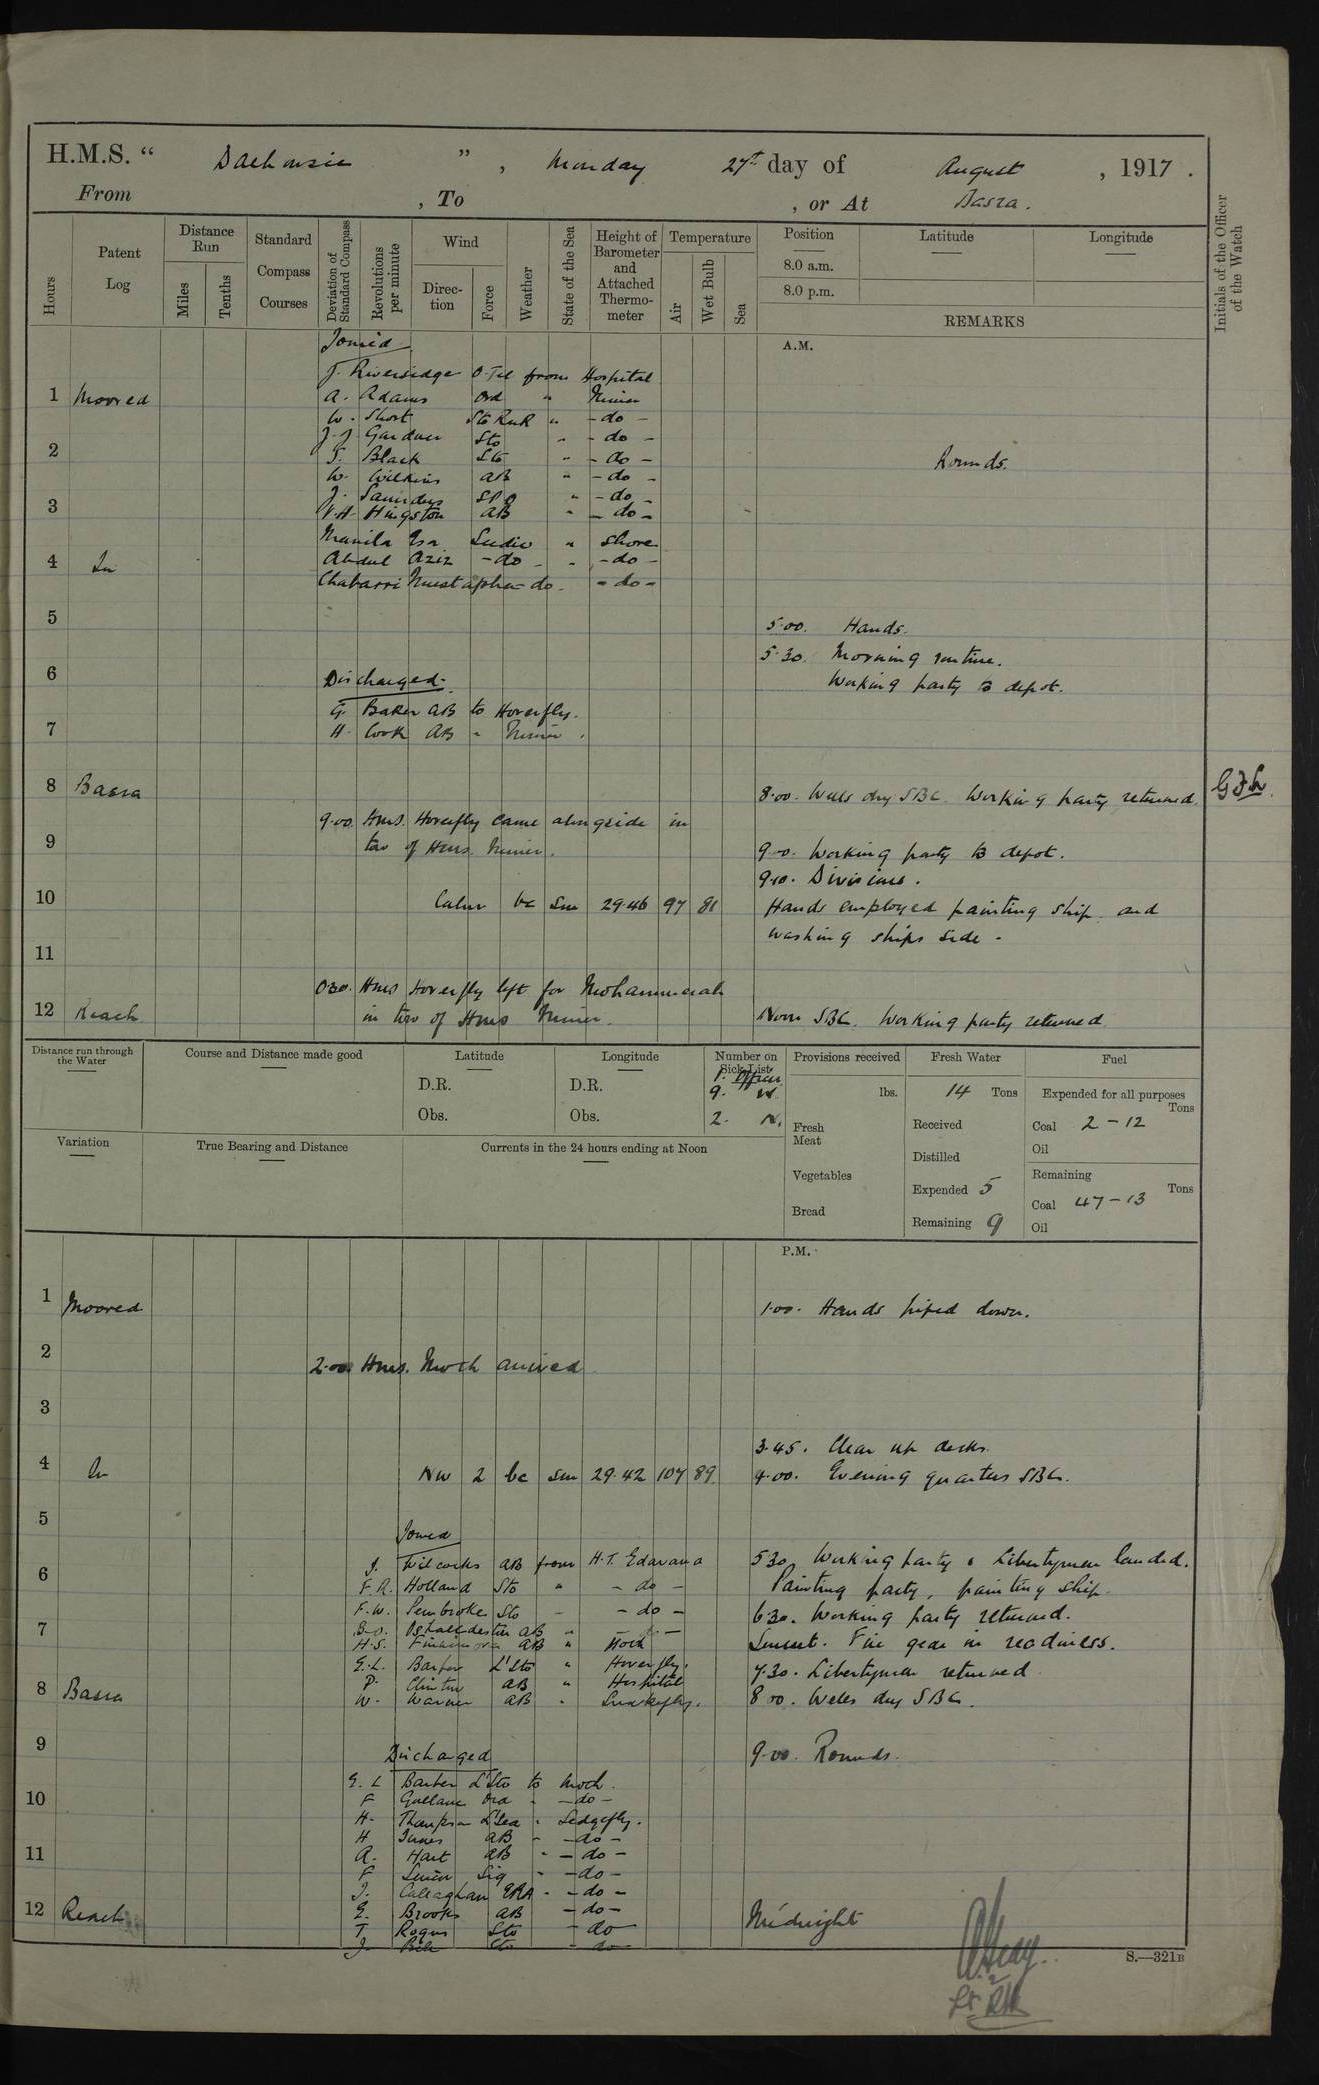 H.M.S. " Dalhousie " , Monday 27th day of August , 1917 .
From , To , or At Basra .
Hours
Patent Log
Distance Run
Miles
Tenths
Standard Compass Courses
Deviation of Standard Compass
Revolutions per minute
Wind
Direction
Force
Weather
State of the Sea
Height of Barometer and Attached Thermometer
Temperature
Air
Wet Bulb
Sea
Position
8.0 a.m.
8.0 p.m.
Latitude
Longitude
REMARKS
Initials of the Officer of the Watch
A.M.
Joined
J. Riversidge O.Tel from Hospital
1 Moored A. Adams Ord " Mimi
W. Short Sto RNR " - do -
J.J Gardner Sto " - do -
2 Rounds.
Black Sto " - do -
W. Wilkins AB " - do -
J. Saunders SPO " - do -
3
Hingston AB " - do -
Seedie " Shore
4 In Abdul Aziz - do - " - do -
Mustapha - do - - do -
5 5.00. Hands.
5.30. Morning routine.
6 Discharged. Working party to depot.
G. Baker AB to Hoverfly.
7 H. Cook AB "
8 Basra 8.00. Wells dry SBC. Working party returned. 
9.00. HMS. Hoverfly came alongside in
9 tow of HMS. 9.0. Working party to depot.
9.10. Divisions.
10 Calm bc Sm 29.46 97 81 Hands employed painting ship and
washing ships side -
11
0.30. HMS Hoverfly left for Mohammerah
12 Reach in tow of HMS Noon SBC. Working party returned
Distance run through the Water
Course and Distance made good
Latitude
D.R.
Obs.
Longitude
D.R.
Obs.
Number on Sick List
1. Officer
9. W.
2. N.
Provisions received
lbs.
Fresh Meat
Vegetables
Bread
Fresh Water
14 Tons
Received
Distilled
Expended 5
Remaining 9
Fuel
Expended for all purposes
Tons
Coal 2 - 12
Oil
Remaining
Tons
Coal 47 - 13
Oil
Variation
True Bearing and Distance
Currents in the 24 hours ending at Noon
P.M.
1 Moored 1.00. Hands piped down.
2 2.00 HMS. Moth arrived
3
3.45. Clear up decks.
4 In NW 2 bc Sm 29.42 107 89 4.00. Evening quarters SBC.
5
Joined
J. Wilcocks AB from H.T. Edavana 5.30. Working party & Libertymen landed.
6 F.R. Holland Sto " - do - Painting party, painting ship.
F.W. Pembroke Sto - - do - 6.30. Working party returned.
7 AB " - do -
H.S. AB " Moth Sunset. Fire gear in readiness.
G.L. Barber L'Sto " Hoverfly. 7.30. Libertymen returned
P. Clinton AB " Hospital
8 Basra W. Warner AB " Snakefly. 8.00. Wells dry SBC.
9 Discharged 9.00. Rounds.
G. L Barber L'Sto to Moth.
10 F Ord " - do -
H. Thompson L'Sea " Sedgefly.
H Innes AB " - do -
11 A. Hart AB " - do -
F Sig " - do -
J. Callaghan ERA " - do -
12 Reach G. Brooks AB - do - Midnight
T. Sto - do
J. Sto - do
S.—321B